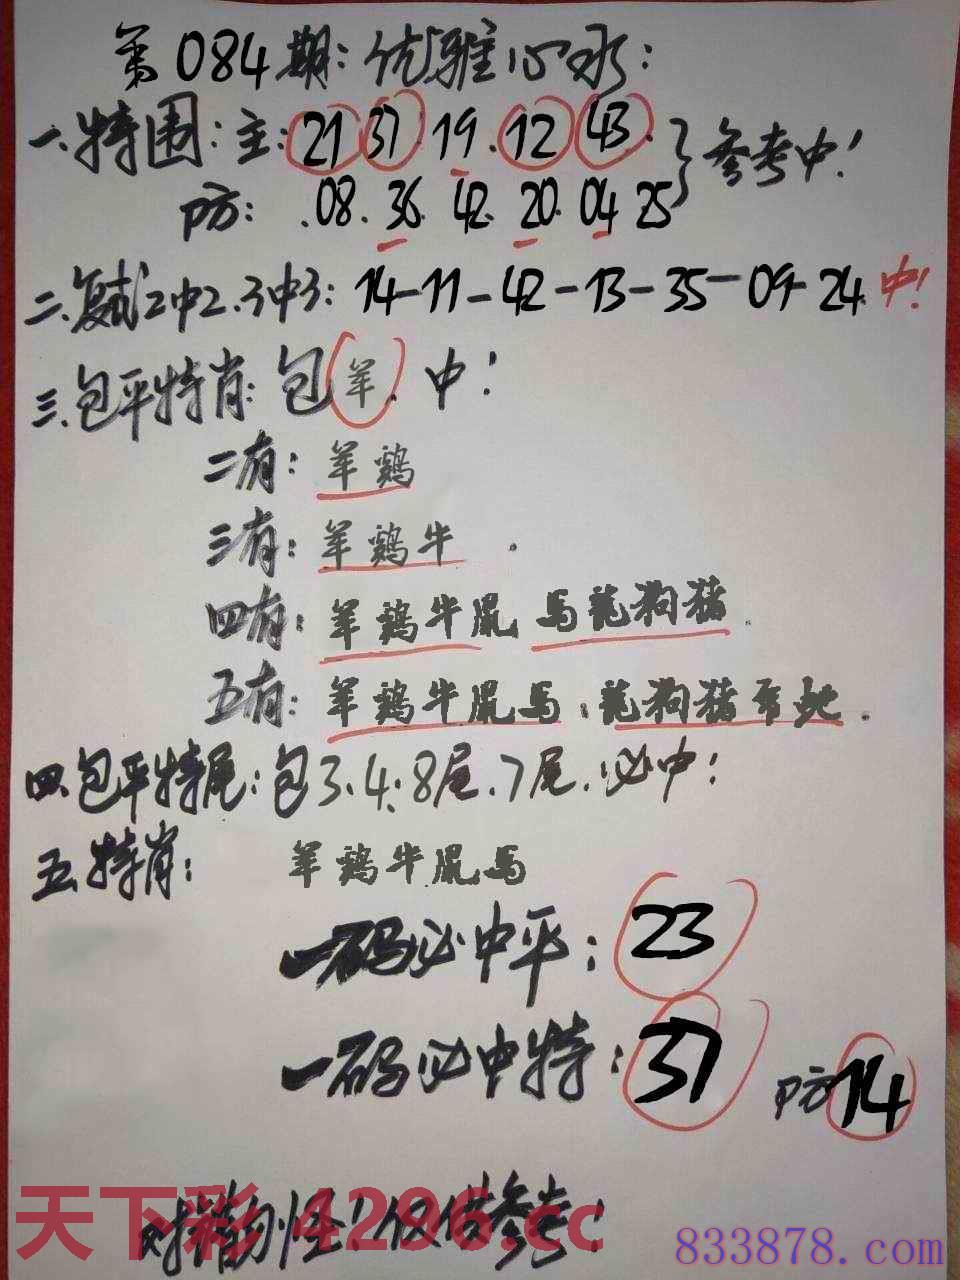 第084期:优雅心水:
一.特围:主:21 37 19.12 43.
参考中!
防:.08.36.42.20.04 25
二.复式2中2.3中3:14-11-42-13-35-09-24 中!
三.包平特肖:包羊.中!
二有:羊鸡
三有:羊鸡牛.
四有:羊鸡牛鼠 马龍狗猪.
五有:羊鸡牛鼠马:龍狗猪
四.包平特尾:包3.4:8尾.7尾.必中:
五.特肖:羊鸡牛鼠马
一码必中平:23
一码必中特:37 防14
猜 怪!仅供参考!
天下彩 4296.cc
833878.com